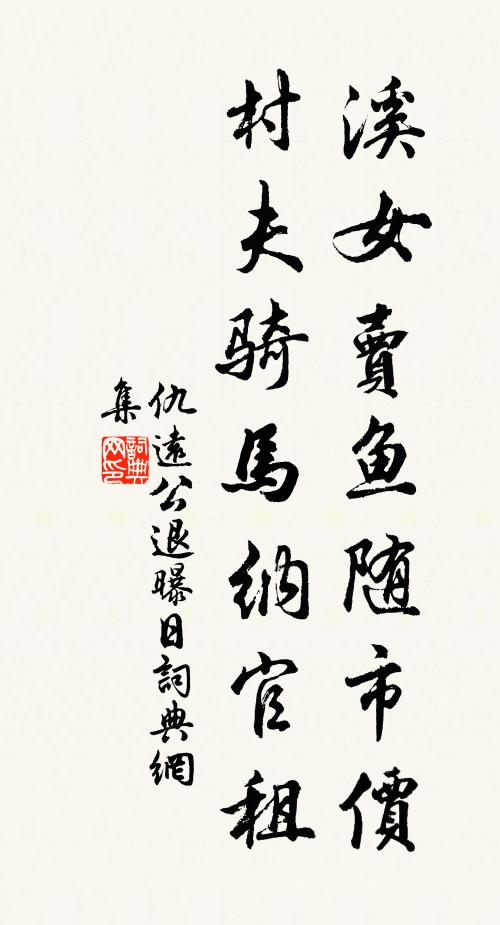 溪女賣鱼随市價
村夫騎馬纳官租
仇遠公退曝日詞典網
集
詞典网印